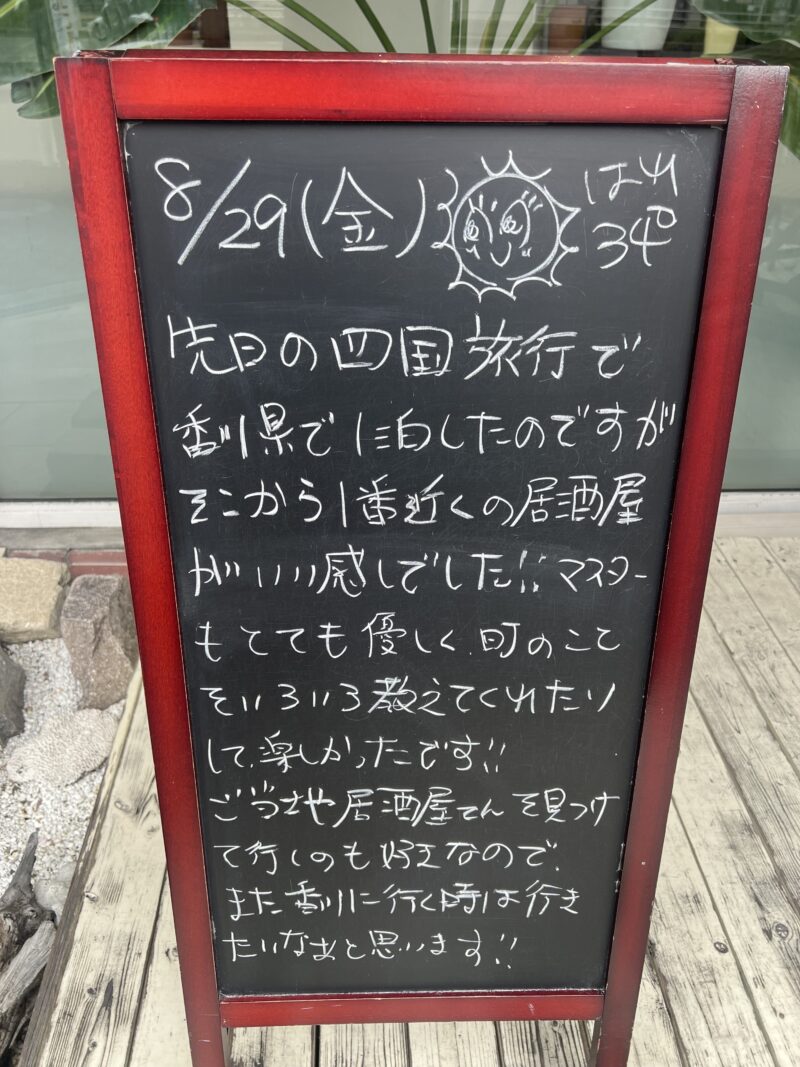 8/29(金) はれ 34°
先日の四国旅行で
香川県で1泊したのですが
そこから1番近くの居酒屋
がいい感じでした!! マスター
もとても優しく、町のこと
をいろいろ教えてくれたり
して、楽しかったです!!
ご当さや居酒屋さんを見つけ
て行くのも好きなので、
また香川に行く時は行き
たいなぁと思います!!